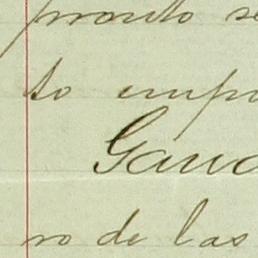 pronto se
to impo
Gana
ro de las